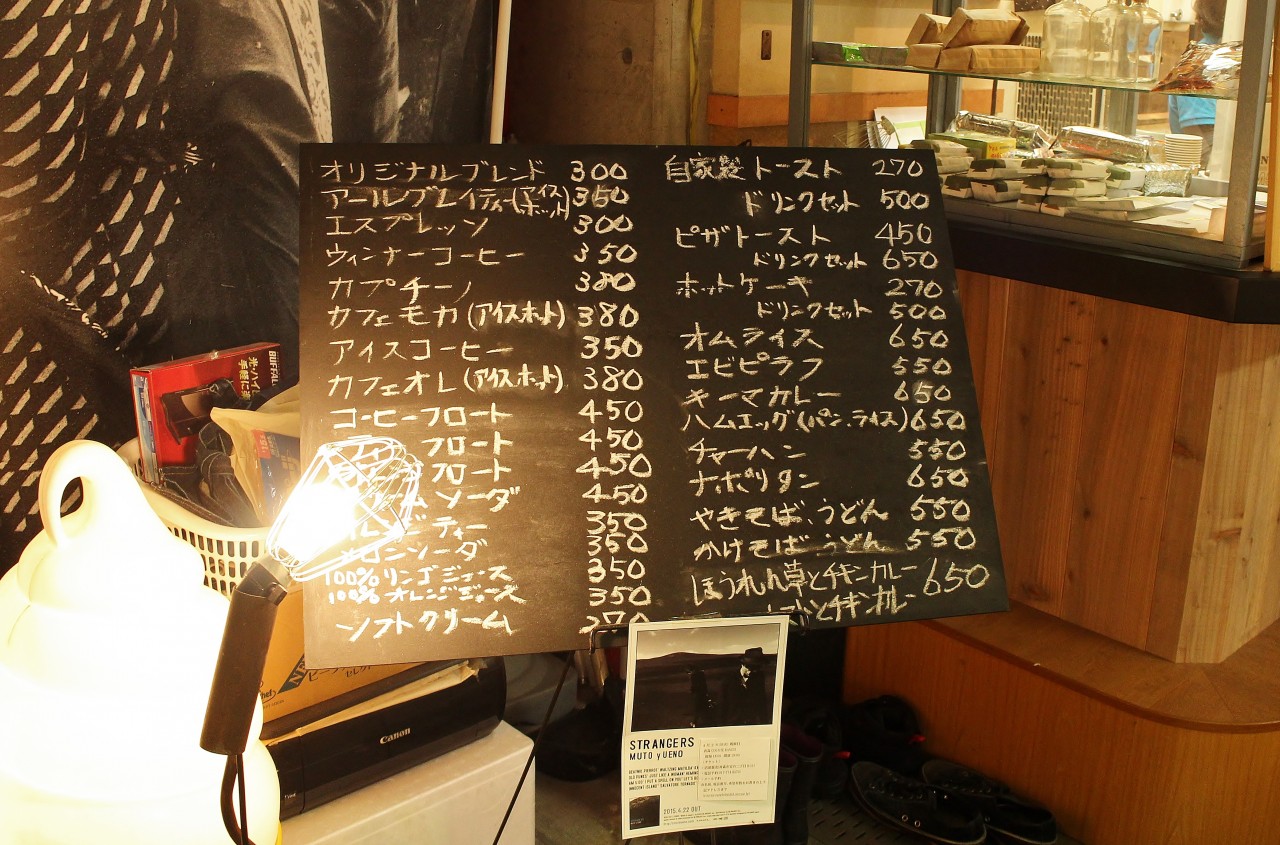 オリジナルブレンド 300
アールグレイティー(アイス ホット) 350
エスプレッソ 300
ウィンナーコーヒー 350
カプチーノ 380
カフェモカ(アイスホット) 380
アイスコーヒー 350
カフェオレ(アイスホット) 380
コーヒーフロート 450
フロート 450
フロート 450
ソーダ 450
ティー 350
メロンソーダ 350
100%リンゴジュース 350
100%オレンジジュース 350
ソフトクリーム 270
自家製トースト 270
ドリンクセット 500
ピザトースト 450
ドリンクセット 650
ホットケーキ 270
ドリンクセット 500
オムライス 650
エビピラフ 550
キーマカレー 650
ハムエッグ(パン、ライス) 650
チャーハン 550
ナポリタン 650
やきそば、うどん 550
かけそば うどん 550
ほうれん草とチキンカレー 650
とチキンカレー
BUFFALO
光・ハイ
手軽に
Canon
STRANGERS
MUTO y UENO
2015.4.22 OUT